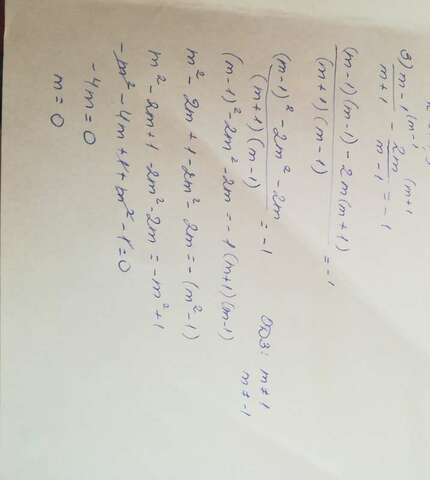 в) m-1 (m-1 / m+1 - 2m (m+1 / m-1 = -1
(m-1)(m-1) - 2m(m+1) / (m+1)(m-1) = -1
(m-1)² - 2m² - 2m / (m+1)(m-1) = -1
(m-1)² - 2m² - 2m = -1(m+1)(m-1)
m² - 2m + 1 - 2m² - 2m = -(m²-1)
m² - 2m + 1 - 2m² - 2m = -m² + 1
-m² - 4m + 1 + m² - 1 = 0
-4m = 0
m = 0
ОДЗ: m ≠ 1
m ≠ -1